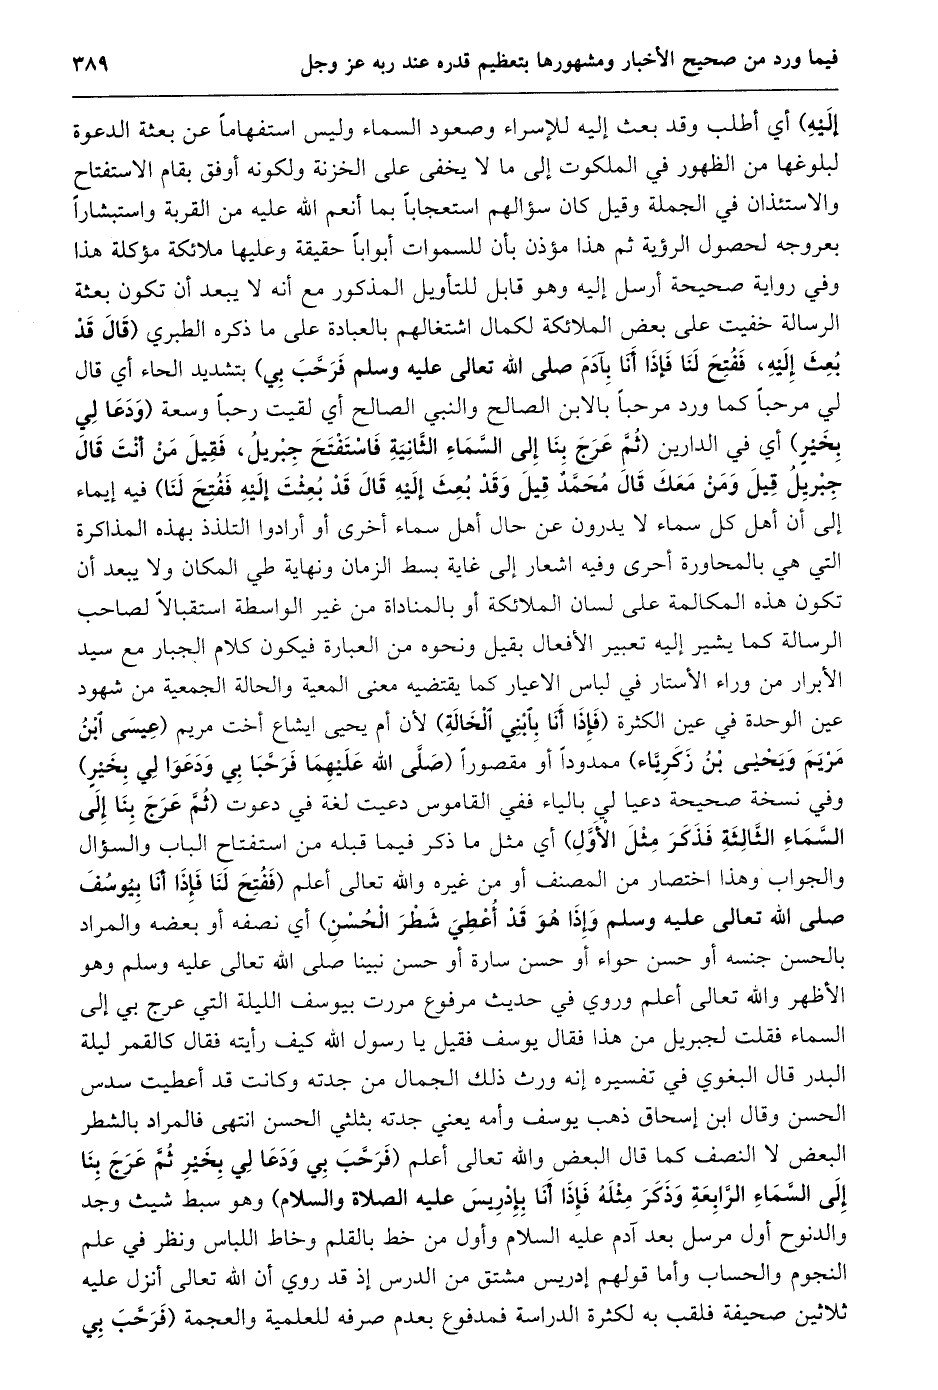 فيما ورد من صحيح الأخبار ومشهورها بتعظيم قدره عند ربه عز وجل ٣٨٩
إِلَيْهِ) أي أطلب وقد بعث إليه للإسراء وصعود السماء وليس استفهاماً عن بعثة الدعوة
لبلوغها من الظهور في الملكوت إلى ما لا يخفى على الخزنة ولكونه أوفق بقام الاستفتاح
والاستئذان في الجملة وقيل كان سؤالهم استعجاباً بما أنعم الله عليه من القربة واستبشاراً
بعروجه لحصول الرؤية ثم هذا مؤذن بأن للسموات أبواباً حقيقة وعليها ملائكة مؤكلة هذا
وفي رواية صحيحة أرسل إليه وهو قابل للتأويل المذكور مع أنه لا يبعد أن تكون بعثة
الرسالة خفيت على بعض الملائكة لكمال اشتغالهم بالعبادة على ما ذكره الطبري (قَالَ قَدْ
بُعِثَ إِلَيْهِ، فَفُتِحَ لَنَا فَإِذَا أَنَا بِآدَمَ صلى الله تعالى عليه وسلم فَرَحَّبَ بِي) بتشديد الحاء أي قال
لي مرحباً كما ورد مرحباً بالابن الصالح والنبي الصالح أي لقيت رحباً وسعة (وَدَعَا لِي
بِخَيْرٍ) أي في الدارين (ثُمَّ عَرَجَ بِنَا إِلى السَّمَاءِ الثَّانِيَةِ فَاسْتَفْتَحَ جِبْرِيلُ، فَقِيلَ مَنْ أَنْتَ قَالَ
جِبْرِيلُ قِيلَ وَمَنْ مَعَكَ قَالَ مُحَمَّدٌ قِيلَ وَقَدْ بُعِثَ إِلَيْهِ قَالَ قَدْ بُعِثْتَ إِلَيْهِ فَفُتِحَ لَنَا) فيه إيماء
إلى أن أهل كل سماء لا يدرون عن حال أهل سماء أخرى أو أرادوا التلذذ بهذه المذاكرة
التي هي بالمحاورة أحرى وفيه اشعار إلى غاية بسط الزمان ونهاية طي المكان ولا يبعد أن
تكون هذه المكالمة على لسان الملائكة أو بالمناداة من غير الواسطة استقبالاً لصاحب
الرسالة كما يشير إليه تعبير الأفعال بقيل ونحوه من العبارة فيكون كلام الجبار مع سيد
الأبرار من وراء الأستار في لباس الاعيار كما يقتضيه معنى المعية والحالة الجمعية من شهود
عين الوحدة في عين الكثرة (فَإِذَا أَنَا بِٱبْنِي ٱلْخَالَةِ) لأن أم يحيى ايشاع أخت مريم (عِيسَى ٱبْنُ
مَرْيَمَ وَيَحْيَى بْنُ زَكَرِيَّاء) ممدوداً أو مقصوراً (صَلَّى الله عَلَيْهِمَا فَرَحَّبَا بِي وَدَعَوَا لِي بِخَيْرٍ)
وفي نسخة صحيحة دعيا لي بالياء ففي القاموس دعيت لغة في دعوت (ثُمَّ عَرَجَ بِنَا إِلَى
السَّمَاءِ الثَّالِثَةِ فَذَكَرَ مِثْلَ الْأَوَّلِ) أي مثل ما ذكر فيما قبله من استفتاح الباب والسؤال
والجواب وهذا اختصار من المصنف أو من غيره والله تعالى أعلم (فَفُتِحَ لَنَا فَإِذَا أَنَا بِيُوسُفَ
صلى الله تعالى عليه وسلم وَإِذَا هُوَ قَدْ أُعْطِيَ شَطْرَ الْحُسْنِ) أي نصفه أو بعضه والمراد
بالحسن جنسه أو حسن حواء أو حسن سارة أو حسن نبينا صلى الله تعالى عليه وسلم وهو
الأظهر والله تعالى أعلم وروي في حديث مرفوع مررت بيوسف الليلة التي عرج بي إلى
السماء فقلت لجبريل من هذا فقال يوسف فقيل يا رسول الله كيف رأيته فقال كالقمر ليلة
البدر قال البغوي في تفسيره إنه ورث ذلك الجمال من جدته وكانت قد أعطيت سدس
الحسن وقال ابن إسحاق ذهب يوسف وأمه يعني جدته بثلثي الحسن انتهى فالمراد بالشطر
البعض لا النصف كما قال البعض والله تعالى أعلم (فَرَحَّبَ بِي وَدَعَا لِي بِخَيْرٍ ثُمَّ عَرَجَ بِنَا
إِلَى السَّمَاءِ الرَّابِعَةِ وَذَكَرَ مِثْلَهُ فَإِذَا أَنَا بِإِدْرِيسَ عليه الصلاة والسلام) وهو سبط شيث وجد
والدنوح أول مرسل بعد آدم عليه السلام وأول من خط بالقلم وخاط اللباس ونظر في علم
النجوم والحساب وأما قولهم إدريس مشتق من الدرس إذ قد روي أن الله تعالى أنزل عليه
ثلاثين صحيفة فلقب به لكثرة الدراسة فمدفوع بعدم صرفه للعلمية والعجمة (فَرَحَّبَ بِي